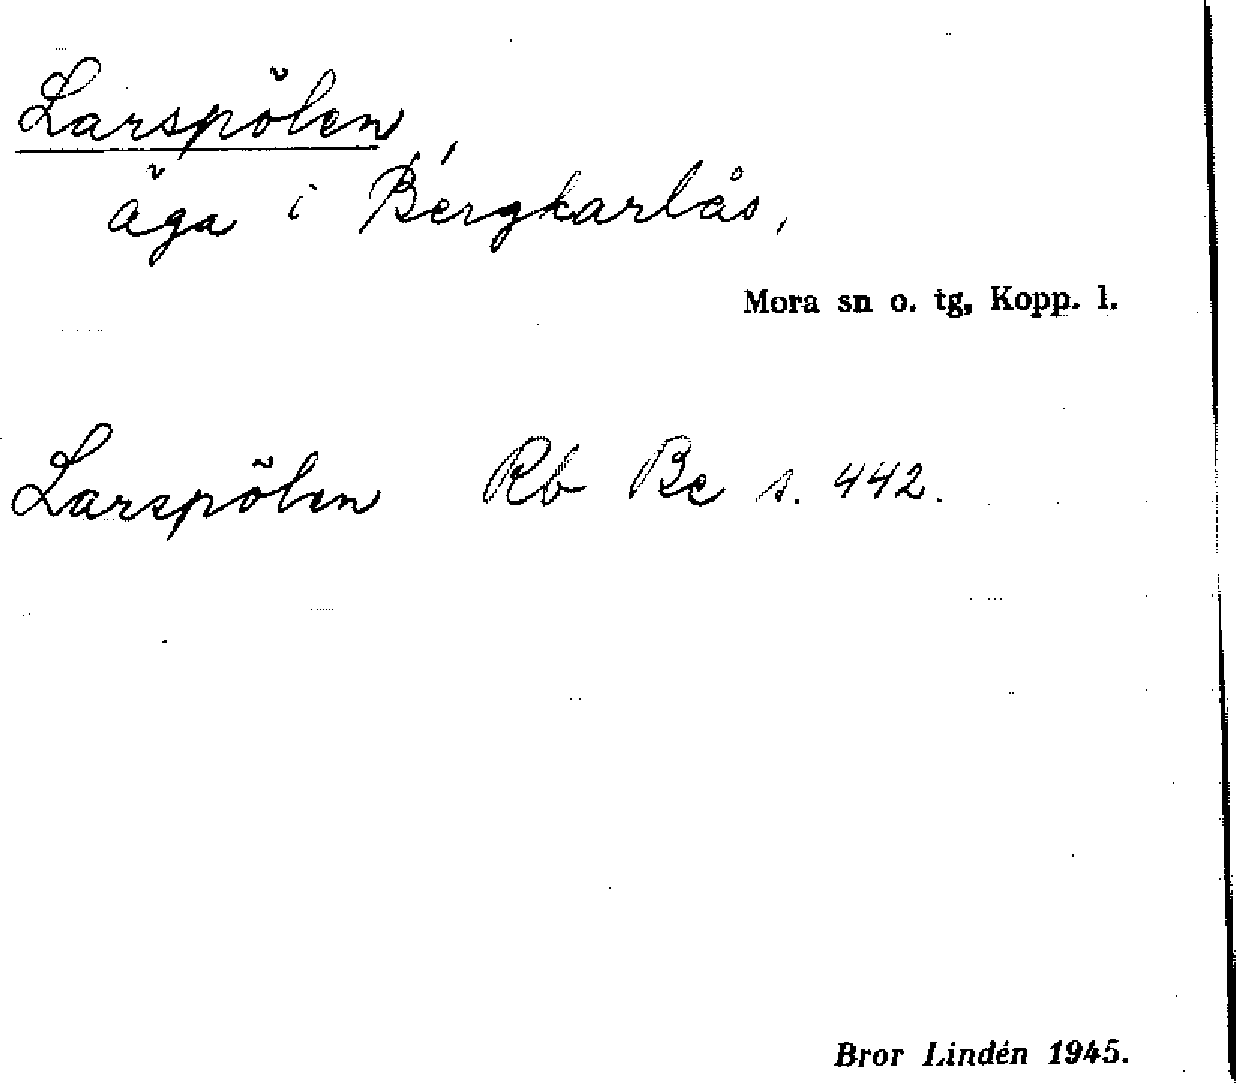 Larspölen
äga i Bergkarlås,
Mora sn o. tg, Kopp. l.
Larspölen Rb Be s. 442.
Bror Lindén 1945.